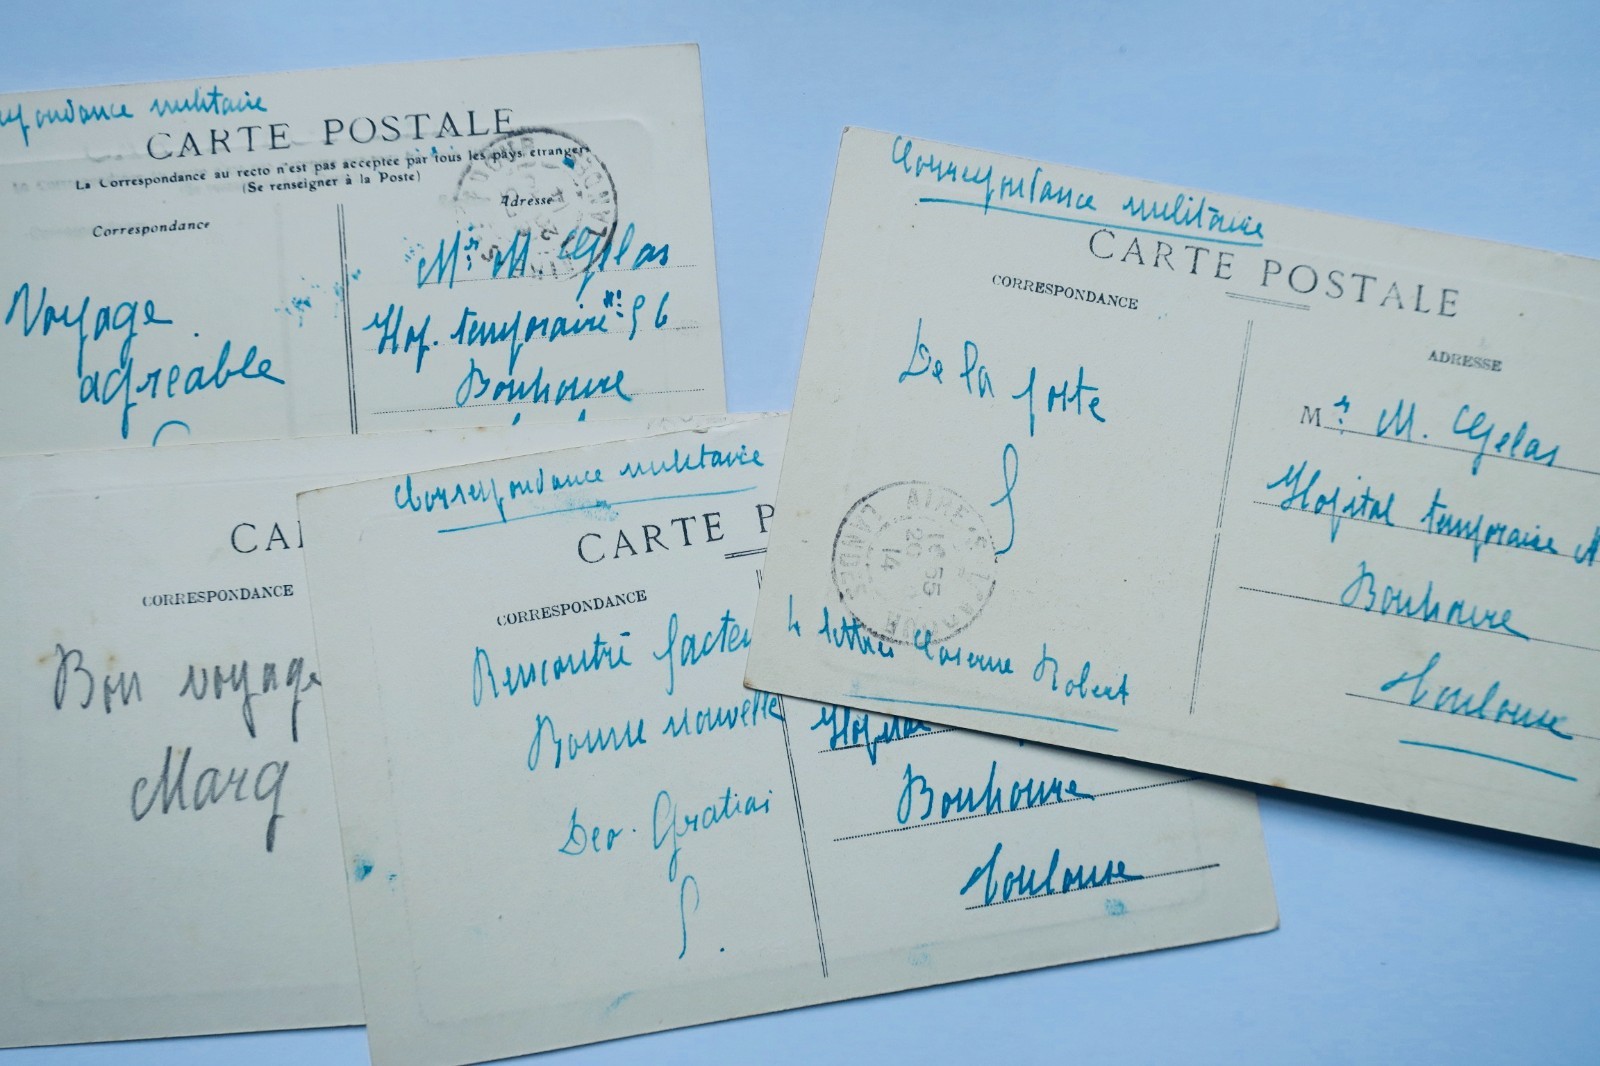 Correspondance militaire
CARTE POSTALE
La Correspondance au recto n'est pas acceptée par tous les pays étrangers
(Se renseigner à la Poste)
Correspondance
Adresse
Voyage
agréable
Mr. M. Gelas
Hop. temporaire N: 56
Bonhoure
CAR
CORRESPONDANCE
Bon voyage
Marg
Correspondance militaire
CARTE P
CORRESPONDANCE
Rencontré facteu
Bonne nouvelle
Deo. Gratias
Hôpital
Bonhoure
Toulouse
Correspondance militaire
CARTE POSTALE
CORRESPONDANCE
ADRESSE
De la poste
AIRE-S-L'ADOUR
LANDES
20
14
4 lettres Caserne Robert
Mr. M. Gelas
Hopital temporaire N
Bonhoure
Toulouse